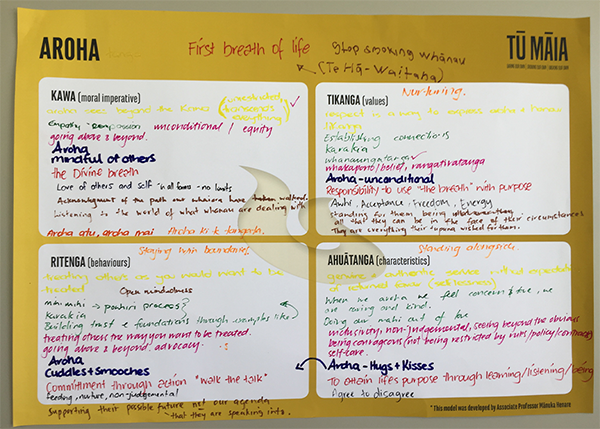 AROHA
First breath of life
Stop smoking whānau
(Te Hā - Waitaha)
TŪ MĀIA
KAWA (moral imperative)
aroha goes beyond the Kawa (unconditionally transcends everything)
Empathy compassion unconditional / equity
going above & beyond.
Aroha
mindful of others
the Divine breath
Love of others and self - in all forms - no limits
Acknowledgment of the path our whānau have walked.
Listening to the world of what whānau are dealing with
Aroha atu, aroha mai
TIKANGA (values)
Nurturing.
respect is a way to express aroha
Establishing connections
Karakia
whanaungatanga
whakapono/belief, rangatiratanga
Aroha - unconditional
Responsibility to use "the breath" with purpose
Awhi, Acceptance, Freedom, Energy
standing for them being
so that they can be in the face of their circumstances
They are everything their tupuna wished for them.
RITENGA (behaviours)
Staying with boundaries
treating others as you would want to be treated
Open mindedness
mihimihi → powhiri process
Karakia
Building trust & foundations through examples like
treating others the way you want to be treated.
going above & beyond. advocacy.
Aroha
Cuddles + Smooches
Committment through action "walk the talk"
feeding, nurture, non-judgemental
Supporting their possible future not our agenda
that they are speaking into.
AHUĀTANGA (characteristics)
Standing alongside.
genuine & authentic service without expectation of returned favour (selflessness)
When we aroha we feel concern & we are loving and kind.
Doing our mahi out of love
inclusivity, non-judgemental, seeing beyond the obvious
being courageous (not being restricted by rules/policy/contracts)
self-care.
Aroha - Hugs + Kisses
To attain lifes purpose through learning/listening/being
Agree to disagree
* This model was developed by Associate Professor Mānuka Henare